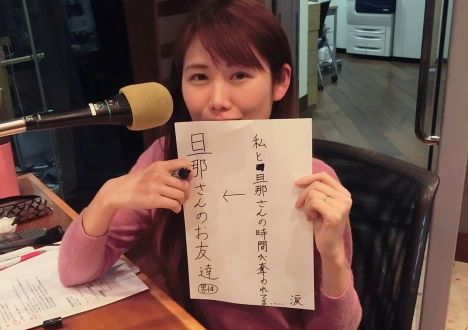 私と旦那さんの時間が奪われる.... 涙
←
旦那さんのお友達
男性